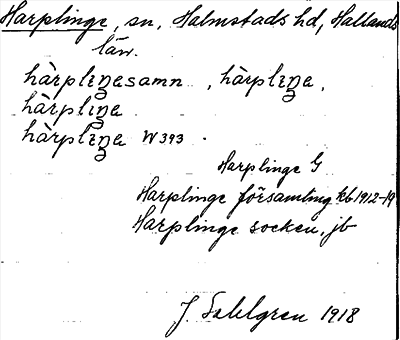 Harplinge, sn, Halmstads hd, Hallands
län.
hàrplıŋesamn, hàrplıŋe,
hàrplıŋe
hàrplıŋe W393.
Harplinge G
Harplinge församling kb 1912-19
Harplinge socken, jb
J. Sahlgren 1918